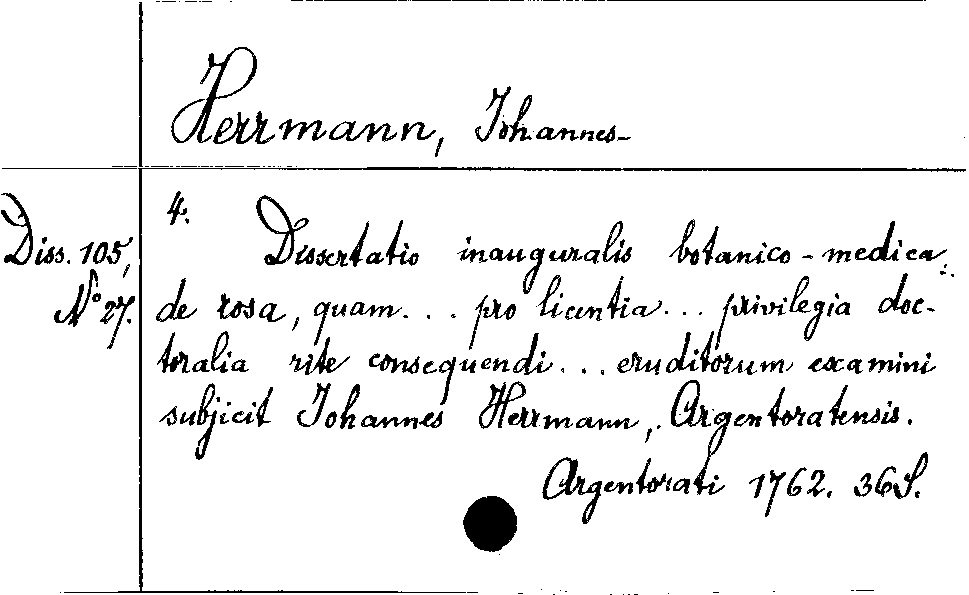 Herrmann, Johannes-
4.
Diss. 105,
No 27.
Dissertatio inauguralis botanico-medica
de rosa, quam... pro licentia... privilegia doc-
toralia rite consequendi... eruditorum examini
subjicit Johannes Herrmann, Argentoratensis.
Argentorati 1762. 36S.